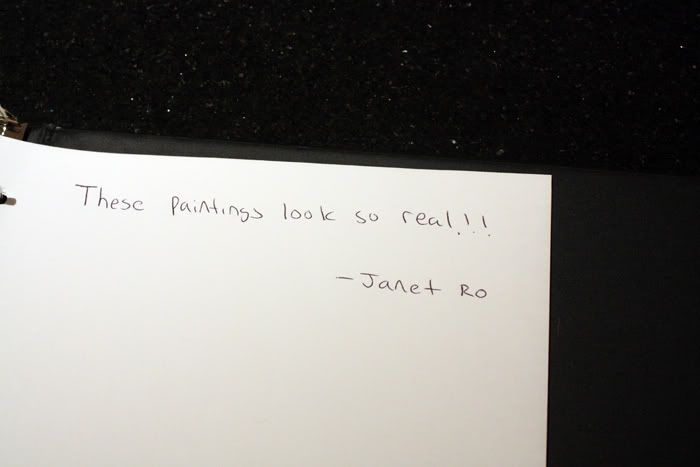 These paintings look so real!!!
- Janet Ro